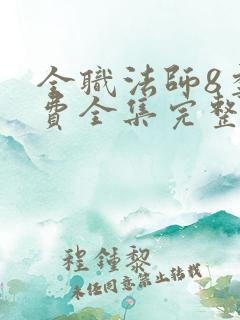 全職法師8季
費全集完整
程鍾黎
未任同意禁止转载